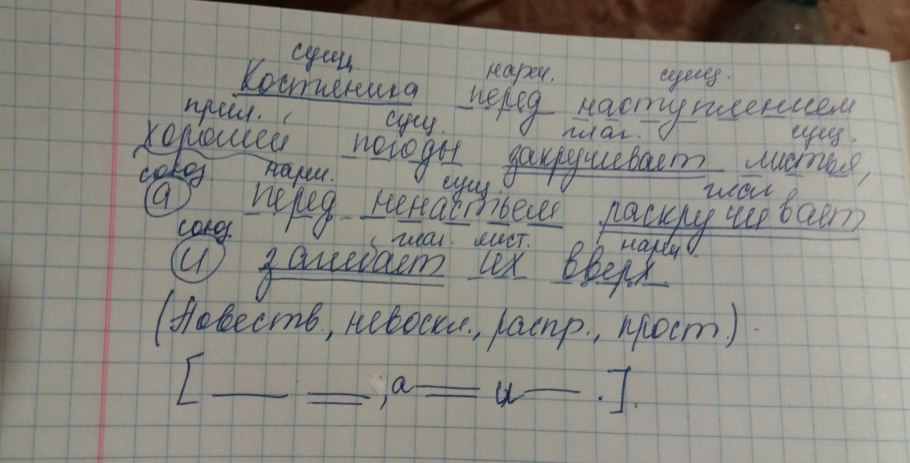 сущ. нареч. сущ.
Костяника перед наступлением
прил. сущ. глаг. сущ.
хорошей погоды закручивает листья,
союз. нареч. сущ. глаг.
а перед ненастьем раскручивает
союз. глаг. мест. нареч.
и загибает их вверх.
(Повеств., невоскл., распр., прост.).
[ , а и .].